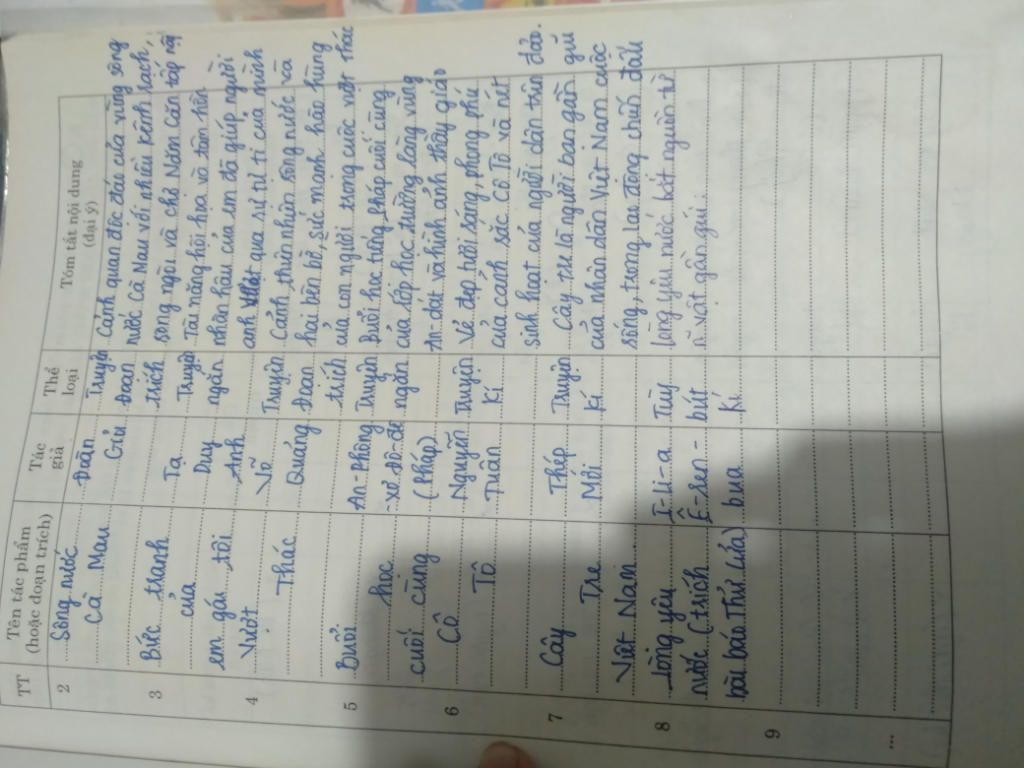 TT
Tên tác phẩm
(hoặc đoạn trích)
Tác
giả
Thể
loại
Tóm tắt nội dung
(đại ý)
2
Sông nước
Cà Mau
Đoàn
Giỏi
Truyện
Đoạn
trích
Cảnh quan độc đáo của vùng sông
nước Cà Mau với nhiều kênh rạch,
sông ngòi và chợ Năm Căn tấp nập
3
Bức tranh
của
em gái tôi
Tạ
Duy
Anh
Truyện
ngắn
Tài năng hội họa và tâm hồn
nhân hậu của em đã giúp người
anh vượt qua sự tự ti của mình
4
Vượt
thác
Võ
Quảng
Truyện
Đoạn
trích
Cảnh thiên nhiên sông nước và
hai bên bờ, sức mạnh hào hùng
của con người trong cuộc vượt thác
5
Buổi
học
cuối cùng
An-Phông
-xơ Đô-đê
(Pháp)
Truyện
ngắn
Buổi học tiếng Pháp cuối cùng
của lớp học trường làng vùng
An-dát và hình ảnh thầy giáo
6
Cô
Tô
Nguyễn
Tuân
Truyện
Kí
Vẻ đẹp tươi sáng, phong phú
của cảnh sắc Cô Tô và nét
sinh hoạt của người dân trên đảo.
7
Cây
Tre
Việt Nam
Thép
Mới
Truyện
Kí
Cây tre là người bạn gần gũi
của nhân dân Việt Nam cuộc
sống, trong lao động chiến đấu
8
Lòng yêu
nước (trích
bài báo Thử lửa)
I-li-a
Ê-ren-
bua
Tùy
bút
Kí
Lòng yêu nước bắt nguồn từ
n vật gần gũi.
9
...